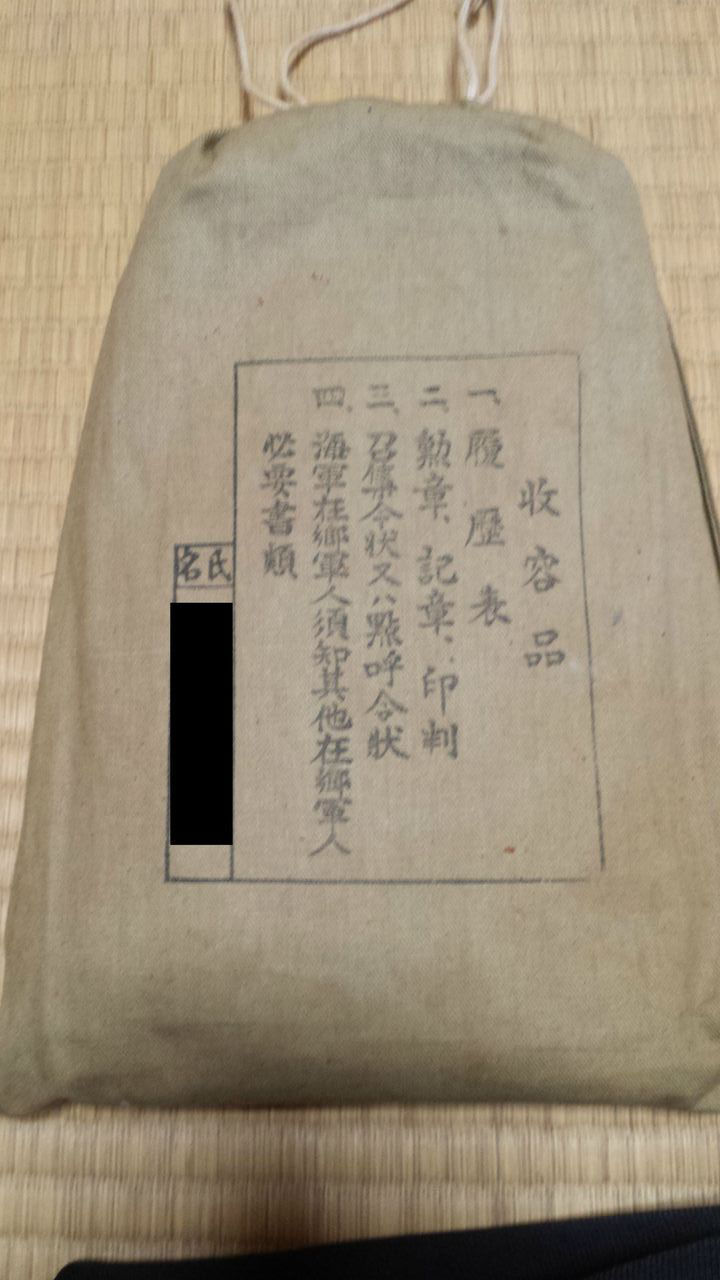 收容品
一、履歴表
二、勲章、記章、印判
三、召集令状又ハ點呼令状
四、海軍在郷軍人須知其他在郷軍人
必要書類
氏名